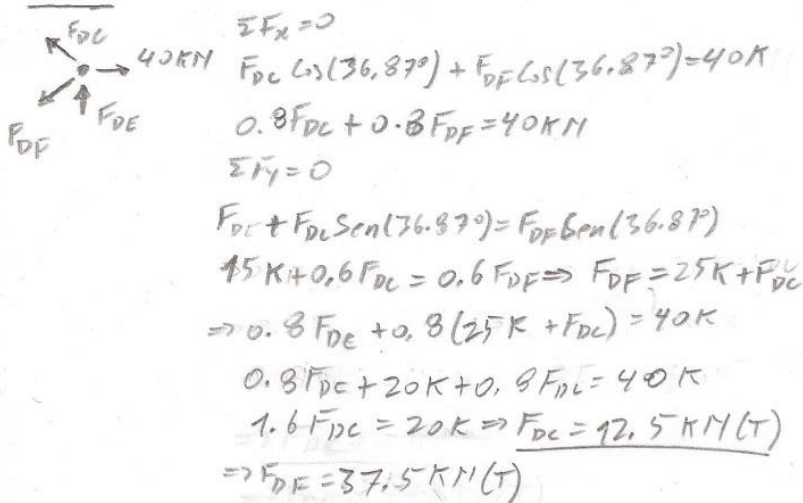 F_DC
40KN
F_DE
F_DF
ΣFx=0
F_DC Cos(36.87°) + F_DF Cos(36.87°)=40K
0.8F_DC + 0.8F_DF = 40KN
ΣFy=0
F_DE + F_DC Sen(36.87°) = F_DF Sen(36.87°)
15K+0.6F_DC = 0.6F_DF => F_DF = 25K+F_DC
=> 0.8F_DC + 0.8(25K + F_DC) = 40K
0.8F_DC + 20K+0.8F_DC = 40K
1.6F_DC = 20K => F_DC = 12.5KN(T)
=> F_DF = 37.5KN(T)